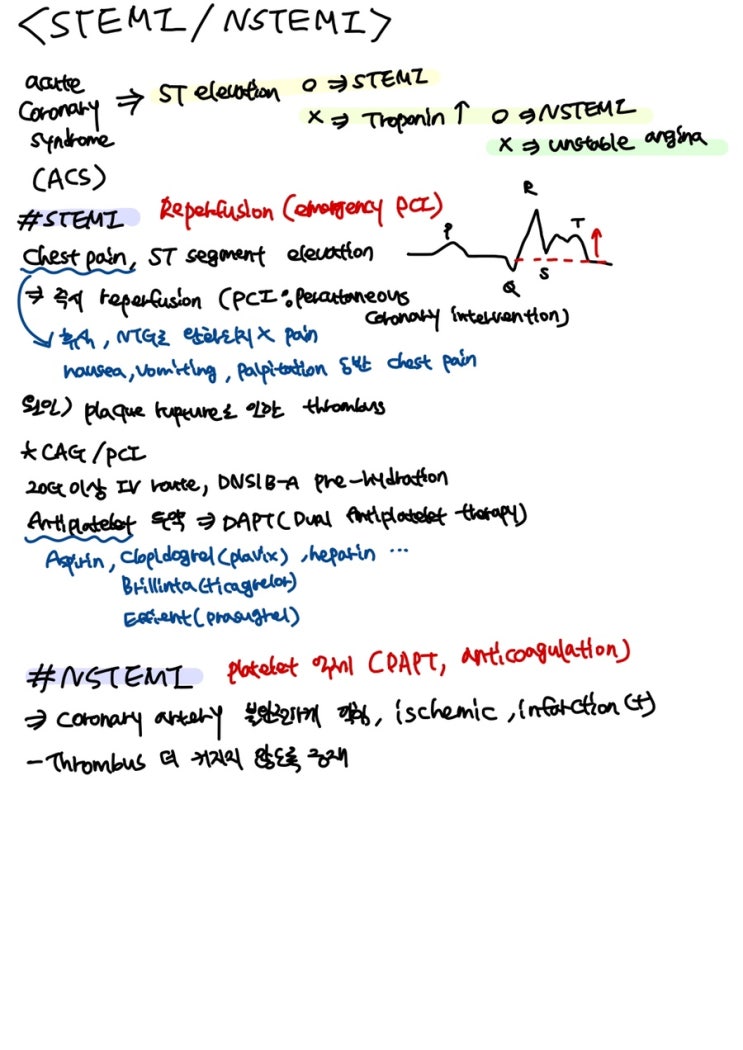 <STEMI / NSTEMI>
acute coronary syndrome (ACS) ⇒ ST elevation O ⇒ STEMI
X ⇒ Troponin ↑ O ⇒ NSTEMI
X ⇒ unstable angina
#STEMI Reperfusion (emergency PCI)
chest pain, ST segment elevation
P Q R S T
⇒ 즉시 reperfusion (PCI : Percutaneous
coronary intervention)
휴식, NTG로 완화되지 X pain
nausea, vomiting, palpitation 동반 chest pain
원인) plaque rupture로 인한 thrombus
★CAG/PCI
20G이상 IV route, DNS1B-A pre-hydration
Antiplatelet 투약 ⇒ DAPT (Dual Antiplatelet therapy)
Aspirin, Clopidogrel (plavix), heparin ...
Brillinta (ticagrelor)
Effient (prasugrel)
#NSTEMI platelet 억제 (DAPT, anticoagulation)
⇒ coronary artery 불완전하게 막힘, ischemic, infarction (+)
- Thrombus 더 커지지 않도록 중재